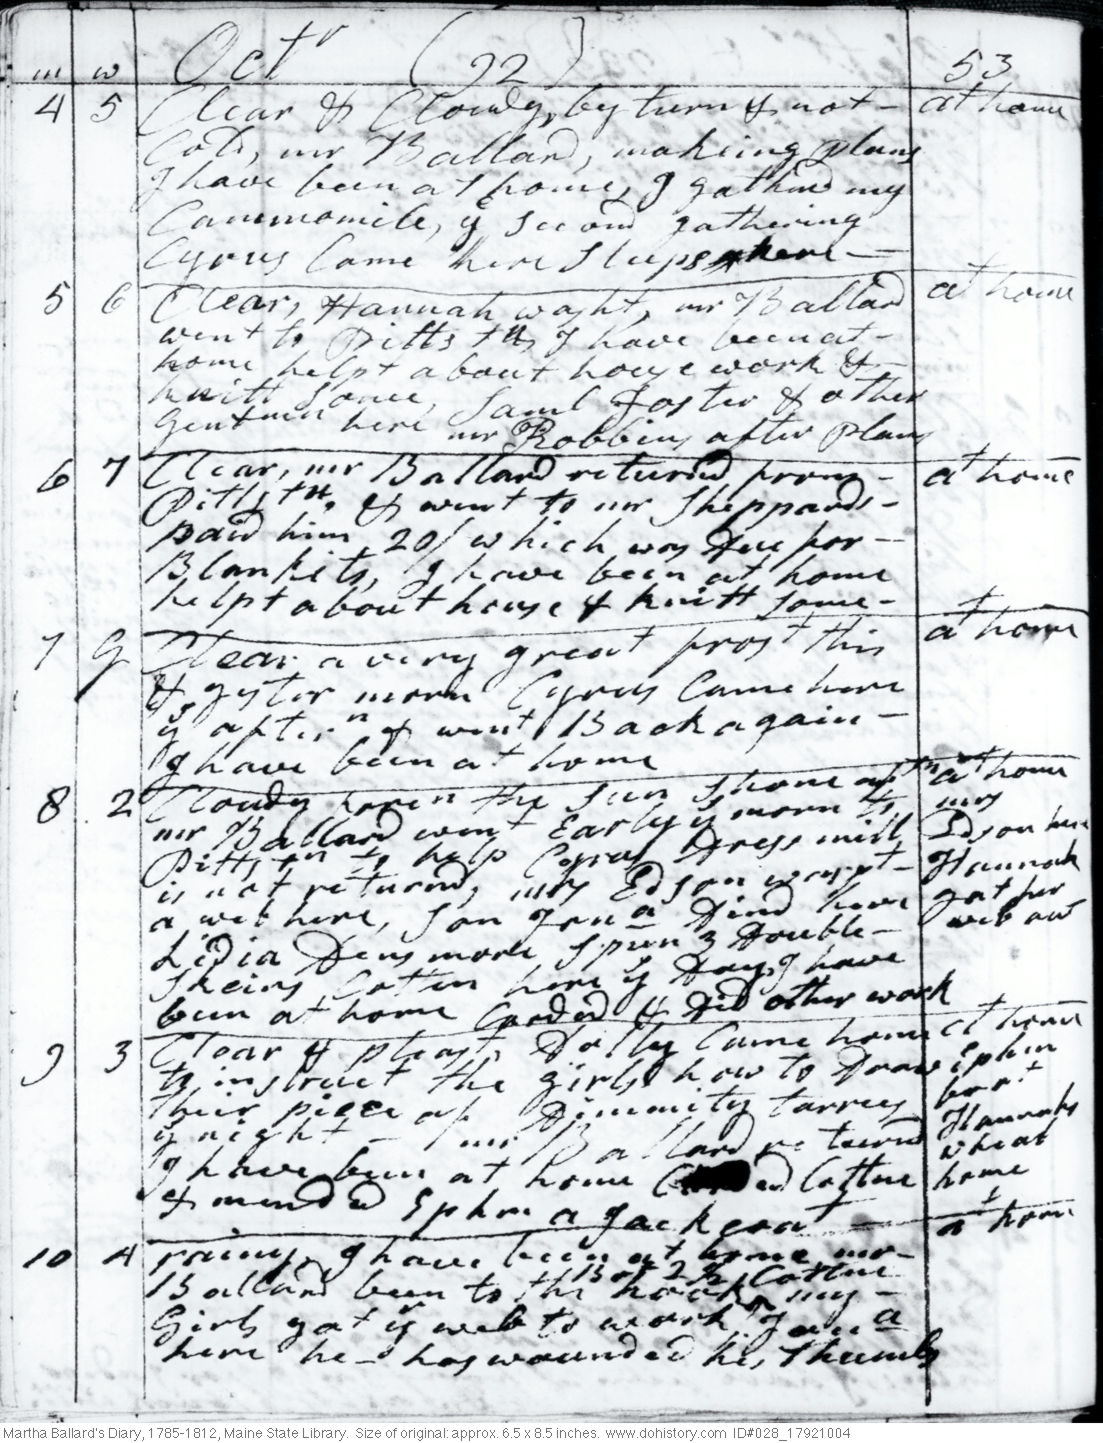 m w Octr (92) 53
4 5 Clear & Clowdy, by turn & not- at home
Cold, mr Ballard, makeing plans
I have been at home, I gathrd my
Cammomile, ye second gathering
Cyrus Came here sleeps here -
5 6 Clear, Hannah washt, mr Ballard at home
went to Pitts tn, I have been at-
home helpt about house work &-
knitt some, Saml Foster & other
Gentmen here mr Robbins after plans
6 7 Clear, mr Ballard returnd from- at home
Pitts tn, & went to mr Sheppards-
paid him 20/ which was Due for-
Blankits, I have been at home
helpt about house & knitt some-
7 G Clear a very great frost this at home
& yester morn Cyrus Came here
ye aftern & went Back again-
I have been at home
8 2 Clowdy foren the sun shone aftn at home
mr Ballard went Early ys morn to mrs
Pitts tn to help Cyrus Dress mill Edson here
is not returnd, mrs Edson warpt- Hannah
a web here, son Jona Dind here got her
Lidia Densmore spun 3 Double- web out
skeins Cotten here ys Day, I have
been at home Carded & Did other work
9 3 Clear & pleast, Dolly Came home at home
to instruct the girls how to Draw Ephm
their piece of Dimmity tarries
ye night - mr Ballard returnd Hannahs
I have been at home Carded Cotten
& mended Ephm a Jack coat - home
10 4 rainy, I have been at home mr- at home
Bot 2 lb Cotten
Ballard been to the hook, my-
Girls got ye web to work Jona
here he - has wounded his Thumb
Martha Ballard's Diary, 1785-1812, Maine State Library. Size of original: approx. 6.5 x 8.5 inches. www.dohistory.com ID#028_17921004